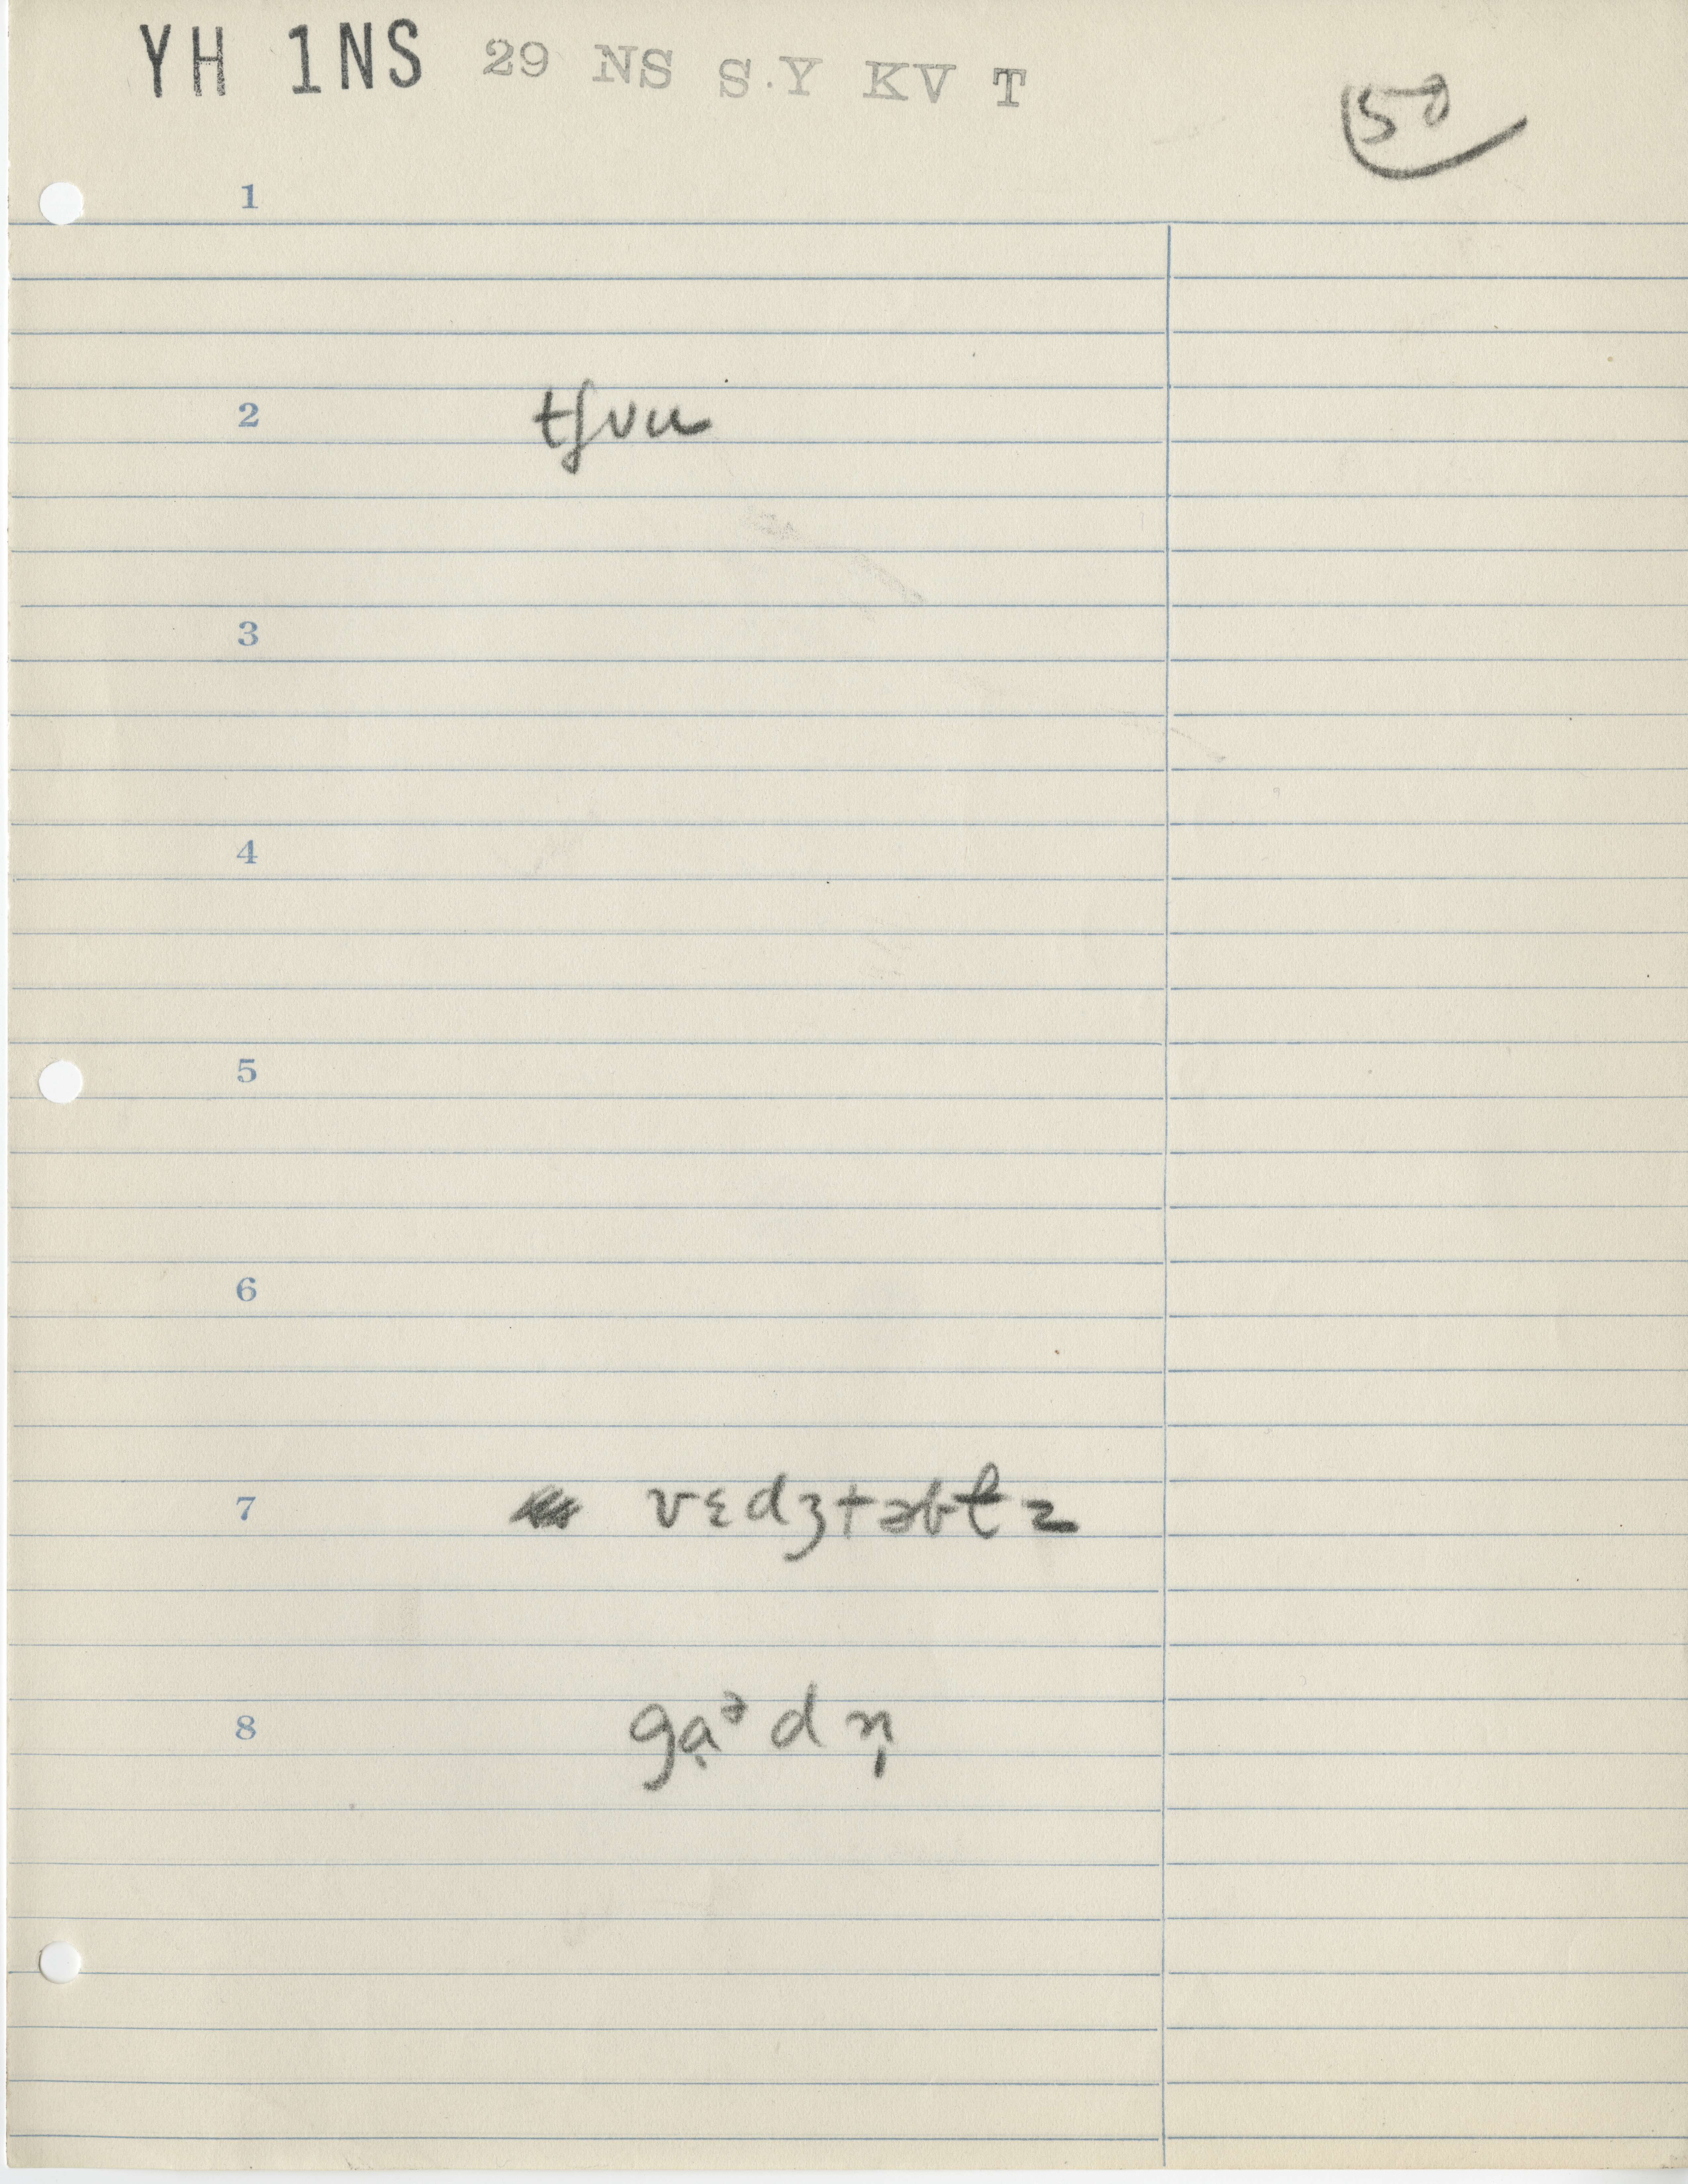 YH 1NS 29 NS S.Y KV T
50
1
2 tʃvu
3
4
5
6
7 vɛdʒtəbɫz
8 gạᵊdn̩